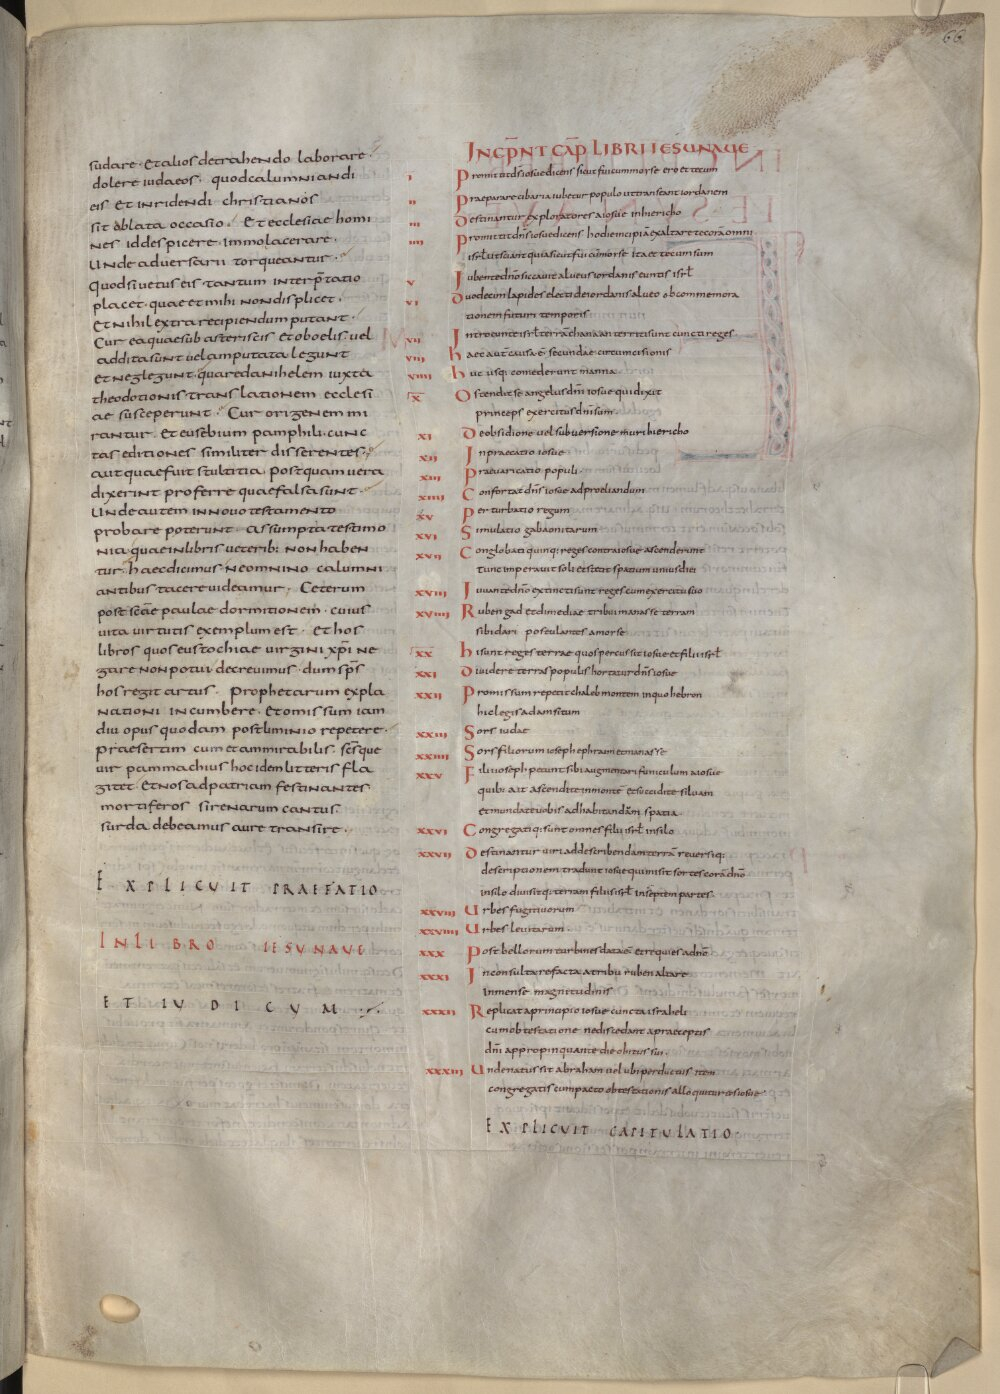 66
sudare · Et alios detrahendo laborare ·
dolere iudaeos · quod calumniandi
eis et inridendi christianos
sit ablata occasio · Et ecclesiae homi
nes id despicere · immo lacerare ·
unde adversarii torqueantur ·
quodsi vetus eis tantum interp̄tatio
placet · quae et mihi non displicet ·
et nihil extra recipiendum putant ·
Cur ea quae sub asteriscis et oboelis · vel
addita sunt vel amputata legunt
et neglegunt · quare danihelem iuxta
theodotionis translationem ecclesi
ae susceperunt · Cur origenem mi
rantur · et eusebium pamphili · cunc
tas editiones similiter disserentes ·
aut quae fuit stultitia · postquam vera
dixerint proferre quae falsa sunt ·
unde autem in novo testamento
probare poterunt · assumpta testimo
nia quae in libris veterib: non haben
tur · haec dicimus ne omnino calumni
antibus tacere videamur · Ceterum
post sc̄ae paulae dormitionem · cuius
vita virtutis exemplum est · et hos
libros quos eustochiae virgini xp̄i ne
gare non potui decrevimus · dum sp̄s
hos regit artus · prophetarum expla
nationi incumbere · et omissum iam
diu opus quodam postliminio repetere ·
praesertim cum et ammirabilis · sc̄sque
vir pammachius hoc idem litteris fla
gitet · et nos ad patriam festinantes
mortiferos sirenarum cantus ·
surda debeamus aure transire ·
EXPLICUIT PRAEFATIO
IN LIBRO IESU NAUE
ET IUDICUM
INCP̄NT CAP̄ LIBRI IESU NAUE
I Promittit dn̄s iosue dicens sicut fui cum morse ero et tecum
II Praeparare cibaria iubetur populo ut transeant iordanem
III Destinantur exploratores a iosue in hiericho
IIII Promittit dn̄s iosue dicens hodie incipiā exaltare te corā omni
isrl̄ ut sciant quia sicut fui cū morse ita et tecum sum
V Iubente dn̄o siccavit alveus iordanis euntis isrl̄
VI Duodecim lapides electi de iordanis alveo ob commemora
tionem futuri temporis
VII Introeunte isrl̄ terrā chanaan territi sunt cuncti reges
VIII haec aut̄ causa ē secundae circumcisionis
VIIII huc usq: comederunt manna
X Ostendit se angelus dn̄i iosue qui dixit
princeps exercitus dn̄i sum
XI De obsidione vel subversione muri hiericho
XII Inpraecatio iosue
XIII Praevaricatio populi
XIIII Confortat dn̄s iosue ad proeliandum
XV Perturbatio regum
XVI Simulatio gabaonitarum
XVII Conglobati quinq: reges contra iosue ascenderunt
tunc imperavit soli et stetit spatium unius diei
XVIII Iuvante dn̄o extincti sunt reges cum exercitu suo
XVIIII Ruben gad et dimediae tribui manasse terram
sibi dari postulantes a morse
XX hi sunt reges terrae quos percussit iosue et filii isrl̄
XXI Dividere terras populis hortatur dn̄s iosue
XXII Promissum repetit chaleb montem in quo hebron
hic legis adam situm
XXIII Sors iudae
XXIIII Sors filiorum ioseph ephraim et manasse
XXV Filii ioseph petunt sibi augmentari funiculum a iosue
quib: ait ascendite in monte et succidite silvam
et mundate vobis ad habitandām spatia
XXVI Congregatiq: sunt omnes filii isrl̄ in silo
XXVII Destinantur viri ad describendam terrā reversiq:
descriptionem tradunt iosue qui misit sortes corā dn̄o
in silo divisitq: terram filiis isrl̄ in septem partes
XXVIII Urbes fugitivorum
XXVIIII Urbes levitarum
XXX Post bellorum turbines data ē et requies a dn̄o
XXXI Inconsulta re facta a tribu ruben altare
inmense magnitudinis
XXXII Replicat a principio iosue cuncta israheli
cum obtestatione ne discedant a praeceptis
dn̄i appropinquante die obitus sui ·
XXXIII Unde natus sit abraham vel ubi perductus item
congregatis cum pacto obtestationis alloquitur iosue ·
EXPLICUIT CAPITULATIO ·